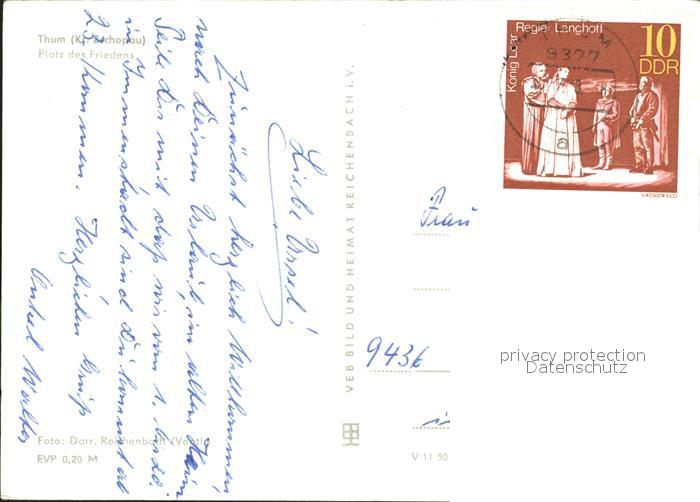 Thum (Kr. Zschopau)
Platz des Friedens
Liebe Ursel!
Zunächst herzlich Willkommen
nach Deinen Urlaub, im alten Heim
Teile Dir mit daß wir vom 1. bis 20.
in Immenstadt sind Du kannst ab
22. kommen. Herzlichen Gruß
Onkel Walter
Foto: Darr, Reichenbach (Vogtl)
EVP 0,20 M
VEB BILD UND HEIMAT REICHENBACH i. V.
V 11 50
König Lear
Regie: Langhoff
10
DDR
GRÜNEWALD
THUM
9377
a
Frau
9436
privacy protection
Datenschutz